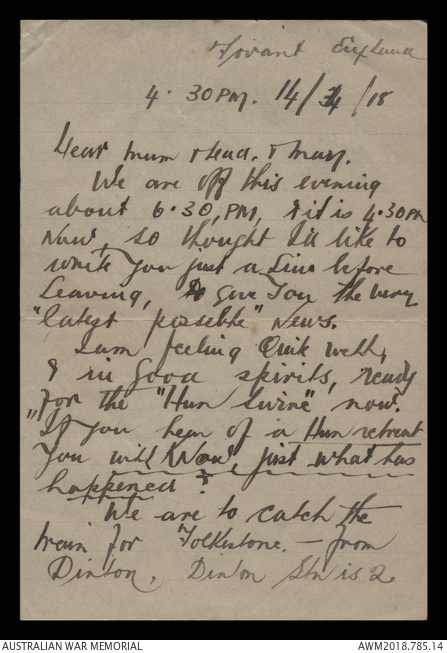 Fovant England
4. 30 PM. 14/4/18
Dear Mum & Dad. & Mary.
We are off this evening
about 6.30, PM, & it is 4.30 PM
Now, so thought I'd like to
write you just a Line before
Leaving, to give You the very
"latest possible" News.
I am feeling Quite well,
& in Good spirits, ready
for the "Hun Swine" now.
"If you hear of a Hun retreat
You will Know, just what has
happened"
We are to catch the
train for Folkestone. — from
Dinton, Dinton Stn is 2
AUSTRALIAN WAR MEMORIAL
AWM2018.785.14